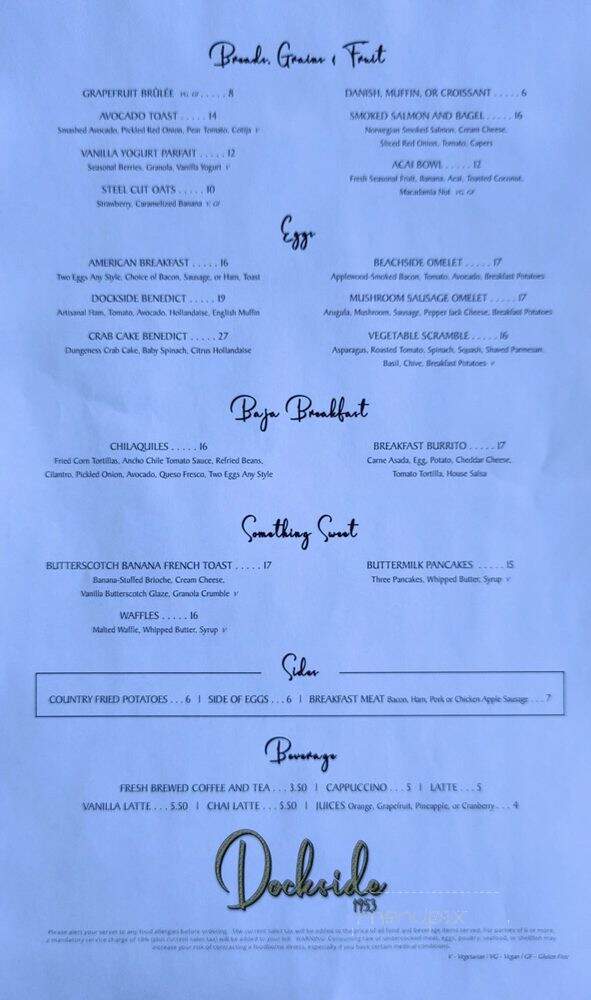 Breads, Grains & Fruit
GRAPEFRUIT BRÛLÉE VG GF . . . . . 8
AVOCADO TOAST . . . . . 14
Smashed Avocado, Pickled Red Onion, Pear Tomato, Cotija V
VANILLA YOGURT PARFAIT . . . . . 12
Seasonal Berries, Granola, Vanilla Yogurt V
STEEL CUT OATS . . . . . 10
Strawberry, Caramelized Banana V GF
DANISH, MUFFIN, OR CROISSANT . . . . . 6
SMOKED SALMON AND BAGEL . . . . . 16
Norwegian Smoked Salmon, Cream Cheese,
Sliced Red Onion, Tomato, Capers
ACAI BOWL . . . . . 12
Fresh Seasonal Fruit, Banana, Acai, Toasted Coconut,
Macadamia Nut VG GF
Eggs
AMERICAN BREAKFAST . . . . . 16
Two Eggs Any Style, Choice of Bacon, Sausage, or Ham, Toast
DOCKSIDE BENEDICT . . . . . 19
Artisanal Ham, Tomato, Avocado, Hollandaise, English Muffin
CRAB CAKE BENEDICT . . . . . 27
Dungeness Crab Cake, Baby Spinach, Citrus Hollandaise
BEACHSIDE OMELET . . . . . 17
Applewood-Smoked Bacon, Tomato, Avocado, Breakfast Potatoes
MUSHROOM SAUSAGE OMELET . . . . . 17
Arugula, Mushroom, Sausage, Pepper Jack Cheese, Breakfast Potatoes
VEGETABLE SCRAMBLE . . . . . 16
Asparagus, Roasted Tomato, Spinach, Squash, Shaved Parmesan,
Basil, Chive, Breakfast Potatoes V
Baja Breakfast
CHILAQUILES . . . . . 16
Fried Corn Tortillas, Ancho Chile Tomato Sauce, Refried Beans,
Cilantro, Pickled Onion, Avocado, Queso Fresco, Two Eggs Any Style
BREAKFAST BURRITO . . . . . 17
Carne Asada, Egg, Potato, Cheddar Cheese,
Tomato Tortilla, House Salsa
Something Sweet
BUTTERSCOTCH BANANA FRENCH TOAST . . . . . 17
Banana-Stuffed Brioche, Cream Cheese,
Vanilla Butterscotch Glaze, Granola Crumble V
WAFFLES . . . . . 16
Malted Waffle, Whipped Butter, Syrup V
BUTTERMILK PANCAKES . . . . . 15
Three Pancakes, Whipped Butter, Syrup V
Sides
COUNTRY FRIED POTATOES . . . 6 | SIDE OF EGGS . . . 6 | BREAKFAST MEAT Bacon, Ham, Pork or Chicken Apple Sausage . . . 7
Beverage
FRESH BREWED COFFEE AND TEA . . . 3.50 | CAPPUCCINO . . . 5 | LATTE . . . 5
VANILLA LATTE . . . 5.50 | CHAI LATTE . . . 5.50 | JUICES Orange, Grapefruit, Pineapple, or Cranberry . . . 4
Dockside
1953
menupix
Please alert your server to any food allergies before ordering. The current sales tax will be added to the price of all food and beverage items served. For parties of 6 or more,
a mandatory service charge of 18% (plus current sales tax) will be added to your bill. WARNING: Consuming raw or undercooked meat, eggs, poultry, seafood, or shellfish may
increase your risk of contracting a foodborne illness, especially if you have certain medical conditions.
V - Vegetarian | VG - Vegan | GF - Gluten Free